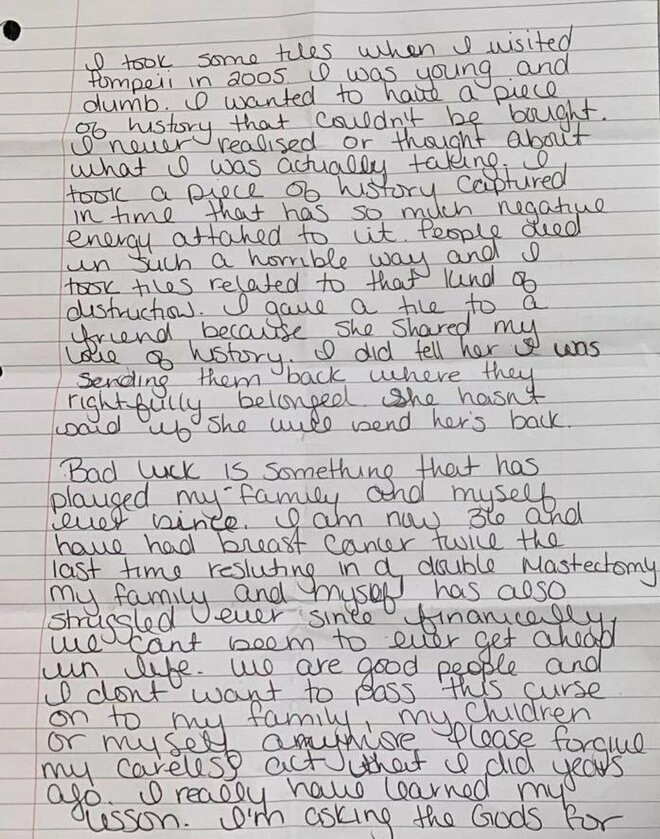 I took some tiles when I visited
Pompeii in 2005 I was young and
dumb. I wanted to have a piece
of history that couldn't be bought.
I never realised or thought about
what I was actually taking. I
took a piece of history captured
in time that has so much negative
energy attahed to it. People died
in such a horrible way and I
took tiles related to that kind of
distruction. I gave a tile to a
friend because she shared my
love of history. I did tell her I was
sending them back where they
rightfully belonged. She hasn't
said if she will send her's back.
Bad luck is something that has
plauged my family and myself
ever since. I am now 36 and
have had breast cancer twice the
last time resluting in a double Mastectomy
my family and myself has also
struggled ever since financically,
we can't seem to ever get ahead
in life. We are good people and
I dont want to pass this curse
on to my family, my children
or myself anymore Please forgive
my careless act that I did years
ago. I really have learned my
lesson. I'm asking the Gods for